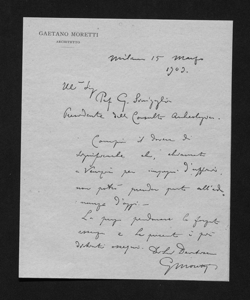 GAETANO MORETTI
ARCHITETTO
Milano 15 Marzo
1903.
Ill° Sig
Prof G.
Presidente della Consulta Archeologica.
Compio il dovere di
significarle che, chiamato
a Venezia per impegni d'ufficio,
non potrò prender parte all'adu
nanza d'oggi -
La prego perdonare la forzata
assenza e La presenti i più
distinti ossequi.
GMoretti